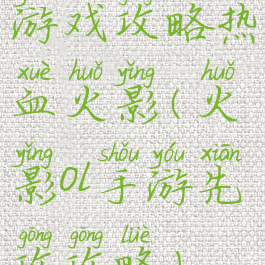 游戏攻略热
xuè huǒ yǐng huǒ
血火影(火
yǐng shǒu yóu xiān
影ol手游先
gōng gōng lüè
攻攻略)